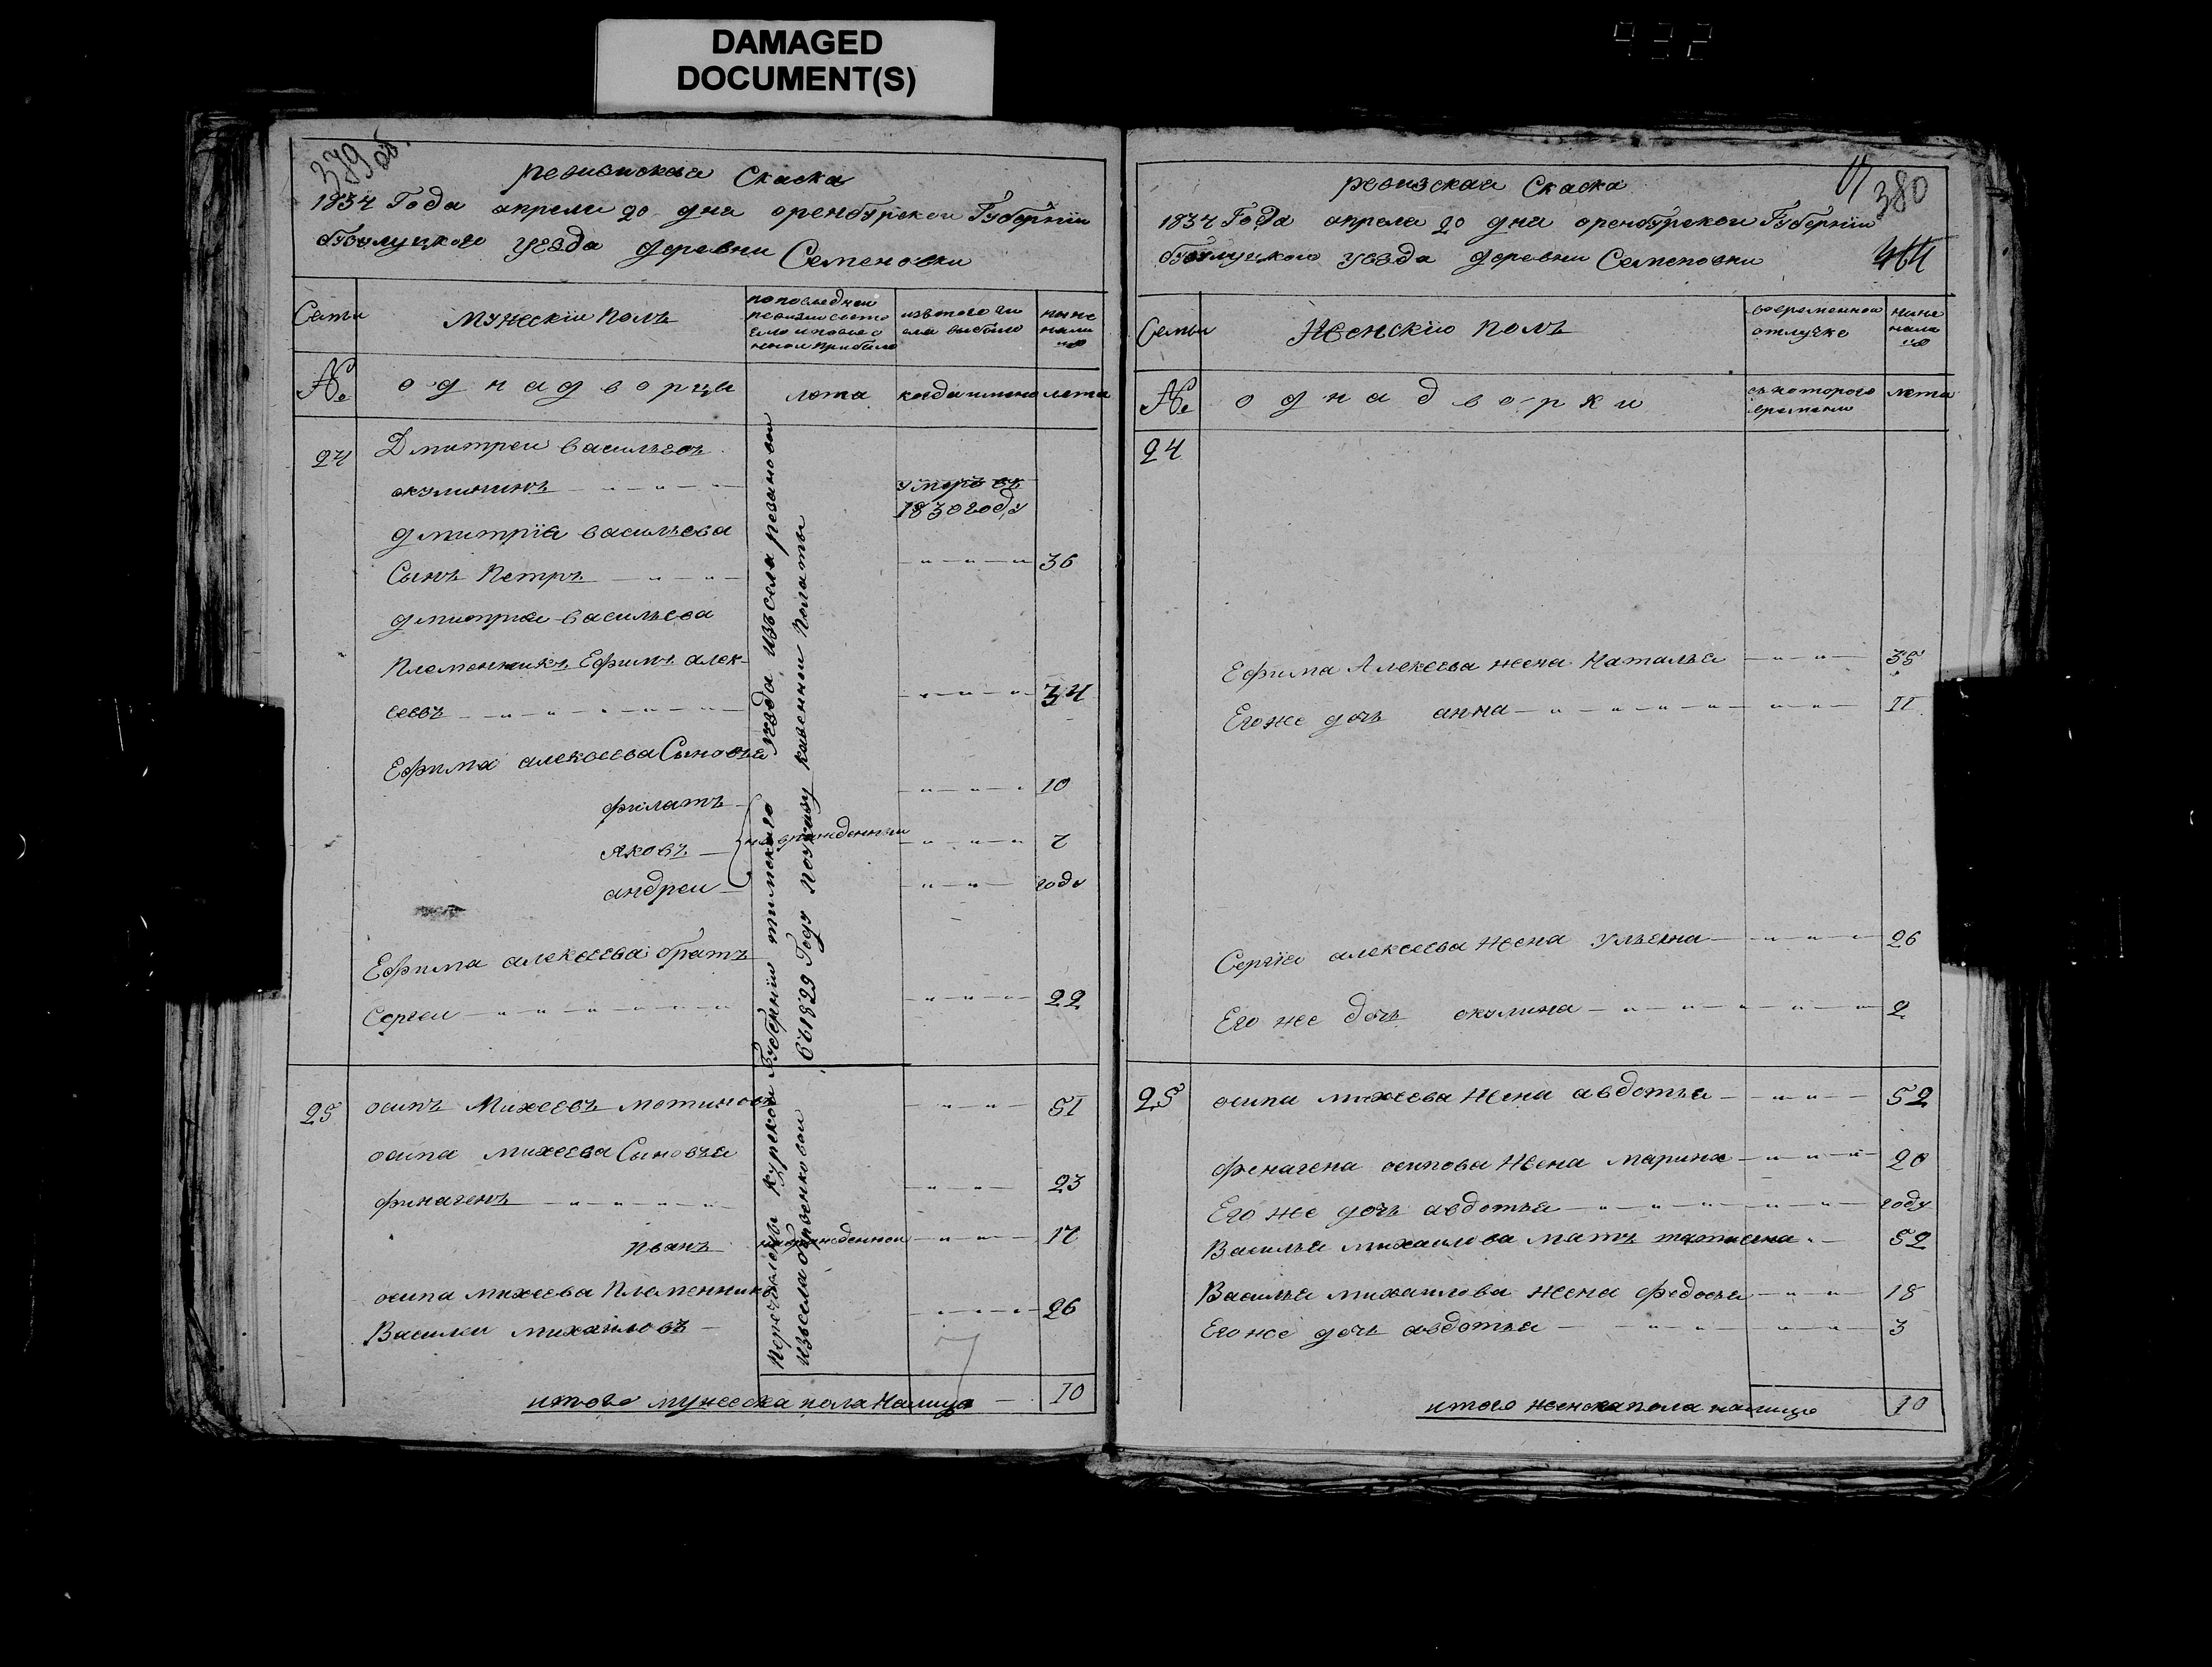 DAMAGED
DOCUMENT(S)
932
379 об.
ревизиская Скаска
1834 Года апрели 20 дня оренбургскои Губернïи
бузулуцкого уезда деревни Семеновки
Семи
Мужескïи Полъ
по последнеи
ревизии состо
ныне
нали
цо
№
однадворцы
лета
когда имено
лета
24
Дмитреи васильевъ
окулининъ
умеръ въ
1830 году
дмитрïя васильева
Сынъ Петръ
36
дмитрия васильева
Племянникъ Ефимъ алек-
сеевъ
34
Ефима алексеева Сыновья
филатъ
10
Яковъ
7
андреи
году
Ефима алексеева братъ
Сергеи
22
25
осипъ Михеевъ мотиновъ
51
осипа михеева Сыновья
финагенъ
23
Иванъ
17
осипа михеева Племенникъ
Василеи михаиловъ
26
Перечислены курскои Губернïи тимскаго уезда изъ села резановои
въ 1829 Году по указу казеннои Палаты
изъ села
итого мужеска пола Налицо
10
380
464
ревизская Скаска
1834 Года апреля 20 дня оренбурскои Губернïи
бузулуцкого уезда деревни Семеновки
Семьи
Женскïю полъ
во временнои
отлучке
ныне
нали
цо
№
однадворки
съ которого
времени
лета
24
Ефима Алексеева жена Наталья
35
Его же дочь анна
11
Сергïя алексеева жена ульяна
26
Его же дочь окулина
2
25
осипа михеева жена авдотья
52
финагена осипова жена марина
20
Его же дочь авдотья
году
Василья михаилова мать татиана
52
Василья михаилова жена федосья
18
Его же дочь авдотья
3
итого женска пола налицо
10